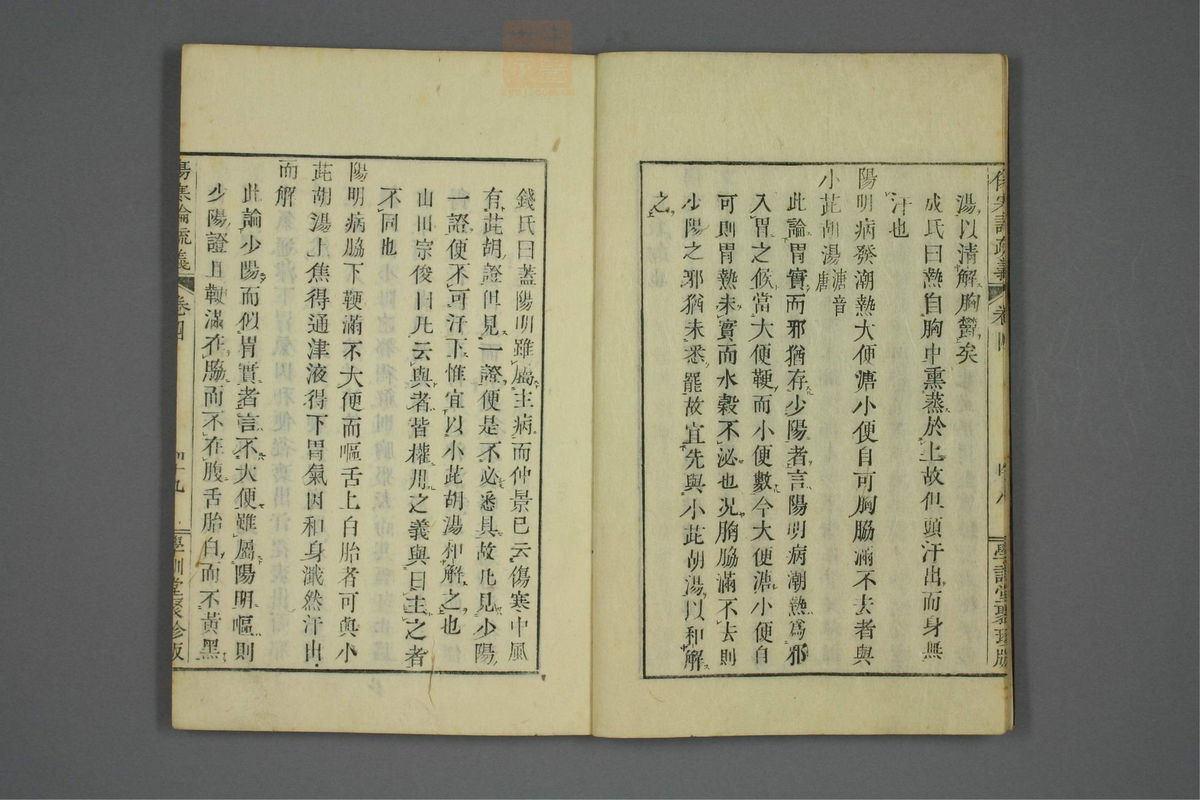 傷寒論疏義 卷四 四十八 學訓堂聚珍版
湯以清解胸鬱矣
成氏曰熱自胸中熏蒸於上故但頭汗出而身無
汗也
陽明病發潮熱大便溏小便自可胸脇滿不去者與
小茈胡湯溏音唐
此論胃實而邪猶存少陽者言陽明病潮熱爲邪
入胃之候當大便鞕而小便數今大便溏小便自
可則胃熱未實而水穀不泌也況胸脇滿不去則
少陽之邪猶未悉罷故宜先與小茈胡湯以和解
之
錢氏曰蓋陽明雖屬主病而仲景已云傷寒中風
有茈胡證但見一證便是不必悉具故凡見少陽
一證便不可汗下惟宜以小茈胡湯和解之也
山田宗俊曰凡云與者皆權用之義與曰主之者
不同也
陽明病脇下鞕滿不大便而嘔舌上白胎者可與小
茈胡湯上焦得通津液得下胃氣因和身濈然汗出
而解
此論少陽而似胃實者言不大便雖屬陽明嘔則
少陽證且鞕滿在脇而不在腹舌胎白而不黃黑
傷寒論疏義 卷四 四十九 學訓堂聚珍版